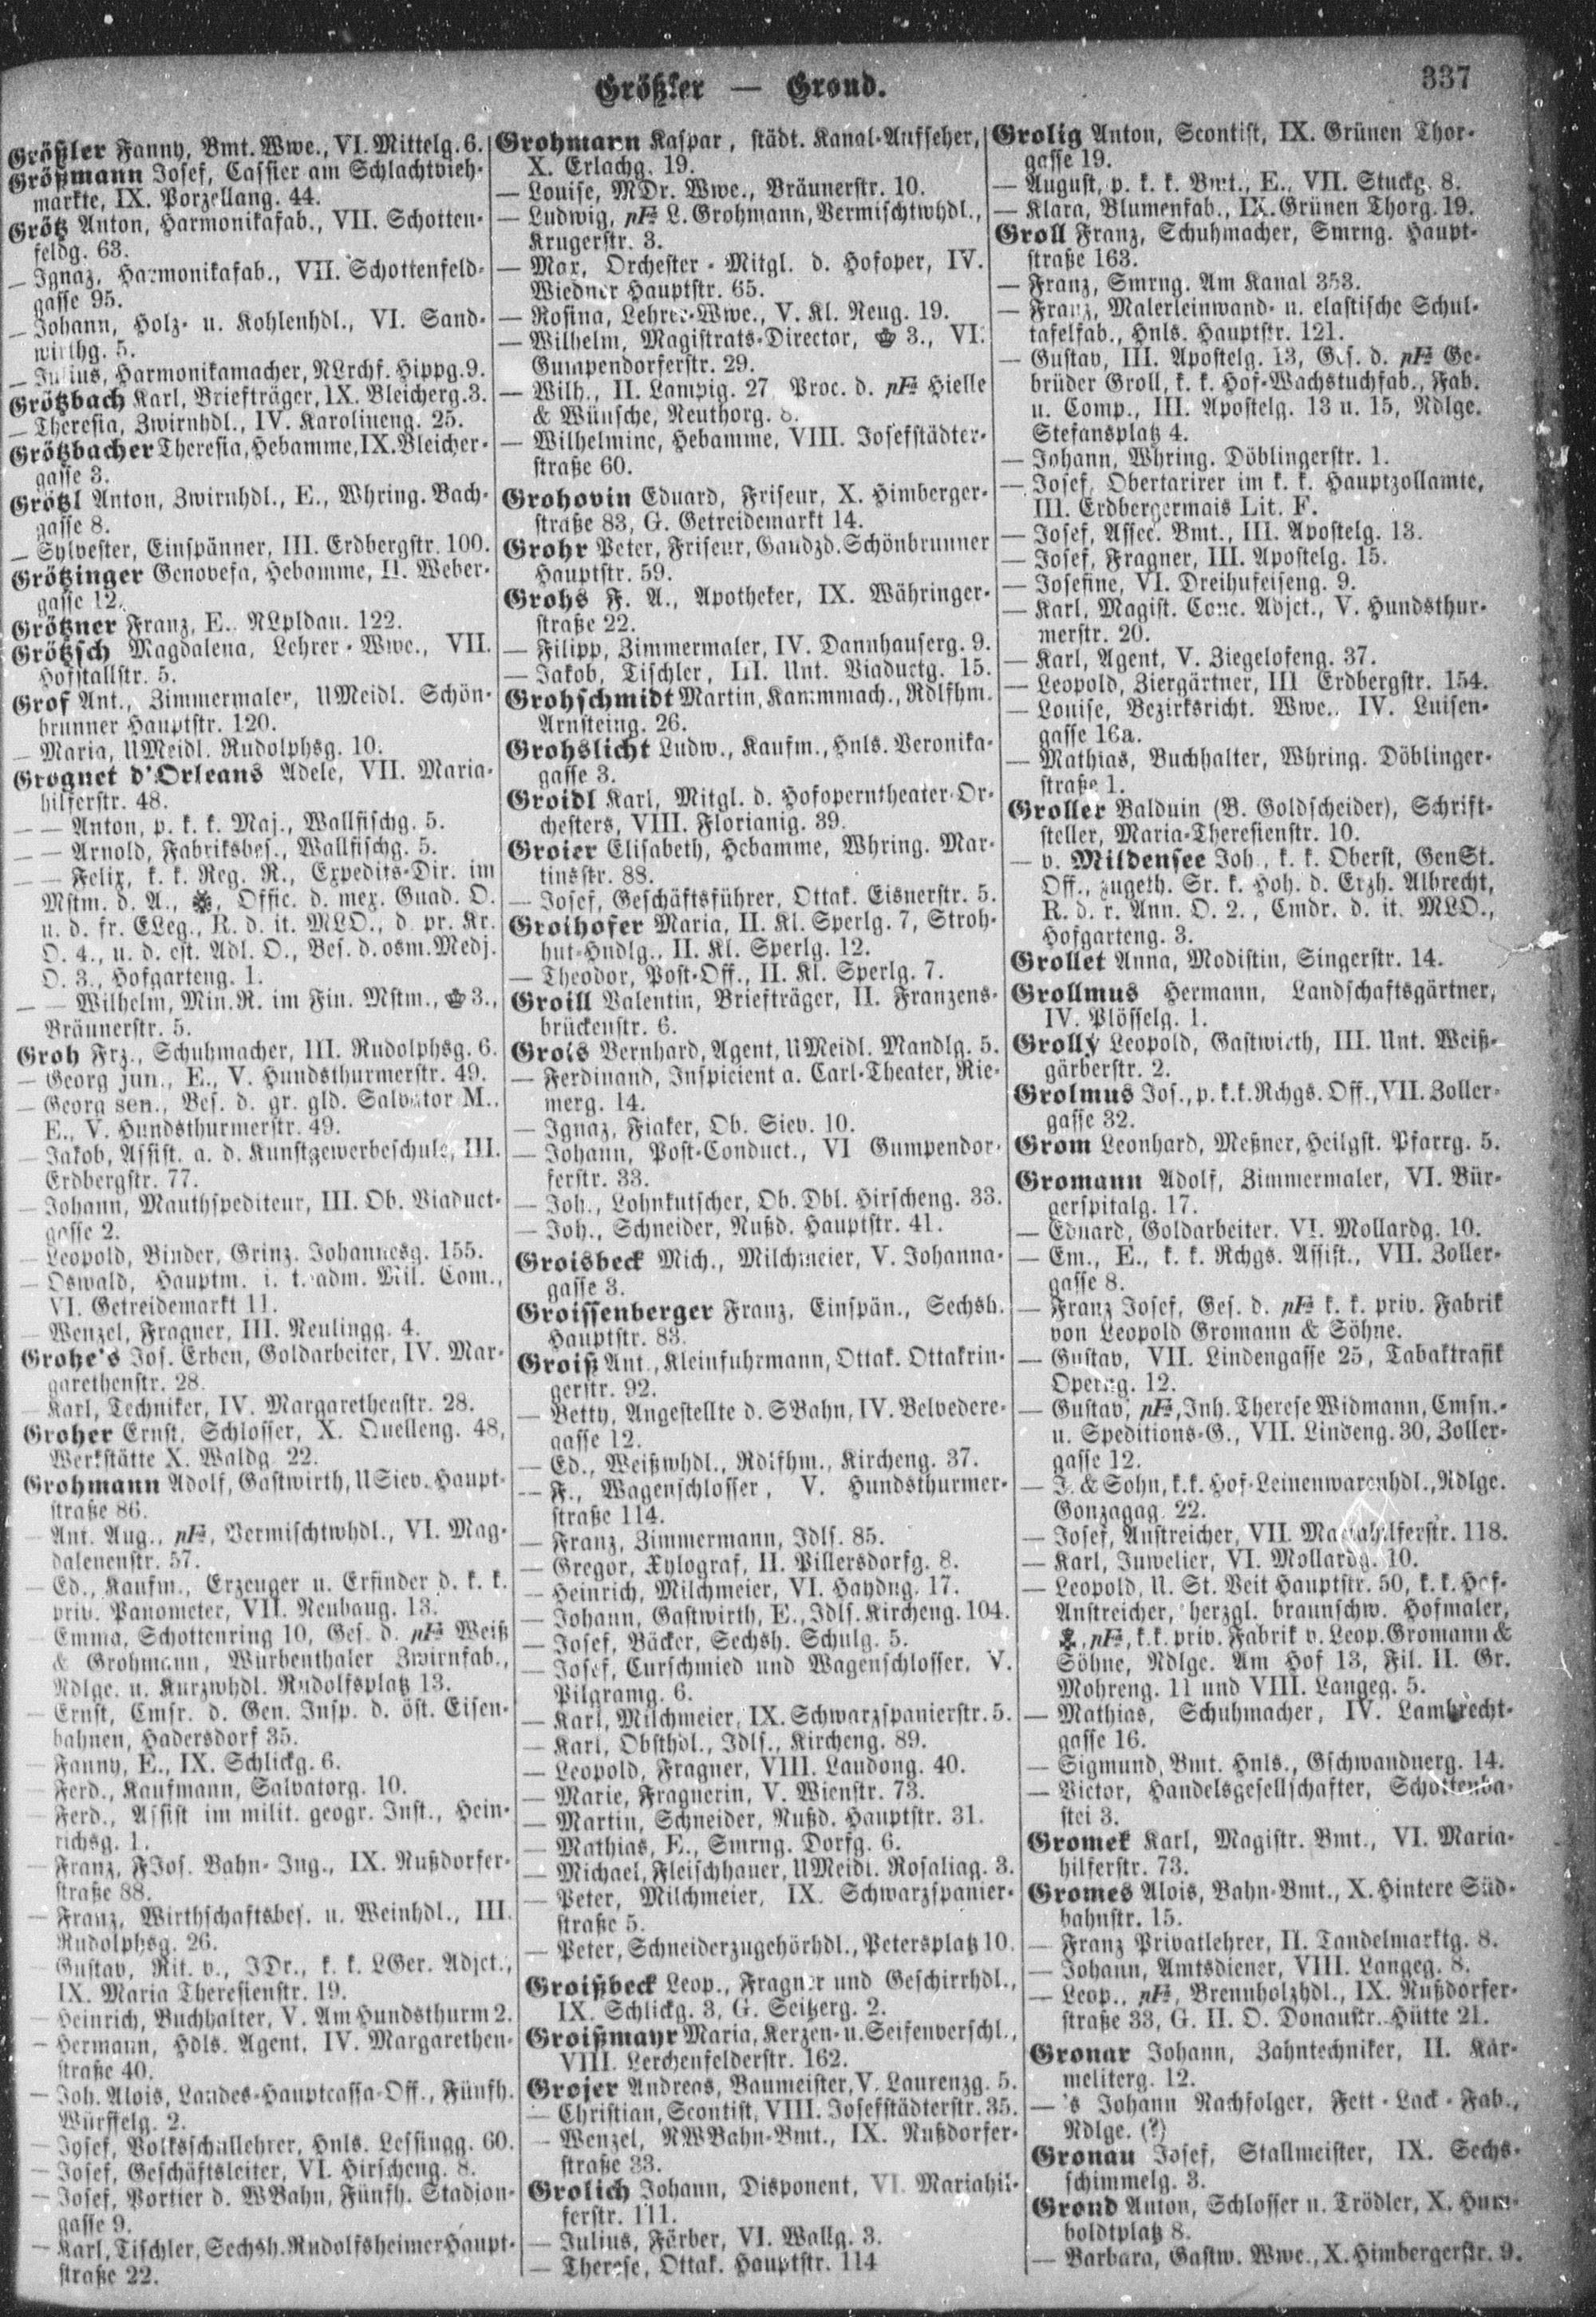 Größler — Grond.
337
Größler Fanny, Bmt. Wwe., VI. Mittelg. 6.
Größmann Josef, Cassier am Schlachtvieh-
markte, IX. Porzellang. 44.
Grötz Anton, Harmonikafab., VII. Schotten-
feldg. 63.
— Ignaz, Harmonikafab., VII. Schottenfeld-
gasse 95.
— Johann, Holz- u. Kohlenhdl., VI. Sand-
wirthg. 5.
— Julius, Harmonikamacher, NLrchf. Hippg. 9.
Grötzbach Karl, Briefträger, IX. Bleicherg. 3.
— Theresia, Zwirnhdl., IV. Karolineng. 25.
Grötzbacher Theresia, Hebamme, IX. Bleicher-
gasse 3.
Grötzl Anton, Zwirnhdl., E., Whring. Bach-
gasse 8.
— Sylvester, Einspänner, III. Erdbergstr. 100.
Grötzinger Genovefa, Hebamme, II. Weber-
gasse 12.
Grötzner Franz, E., NLpldau. 122.
Grötzsch Magdalena, Lehrer-Wwe., VII.
Hofstallstr. 5.
Grof Ant., Zimmermaler, UMeidl. Schön-
brunner Hauptstr. 120.
— Maria, UMeidl. Rudolphsg. 10.
Grognet d'Orleans Adele, VII. Maria-
hilferstr. 48.
— — Anton, p. k. k. Maj., Wallfischg. 5.
— — Arnold, Fabriksbes., Wallfischg. 5.
— — Felix, k. k. Reg. R., Expedits-Dir. im
Mstm. d. A., Offic. d. mex. Guad. O.
u. d. fr. ELeg., R. d. it. MLO., d. pr. Kr.
O. 4., u. d. est. Adl. O., Bes. d. osm. Medj.
O. 3., Hofgarteng. 1.
— — Wilhelm, Min. R. im Fin. Mstm., 3.,
Bräunerstr. 5.
Groh Frz., Schuhmacher, III. Rudolphsg. 6.
— Georg jun., E., V. Hundsthurmerstr. 49.
— Georg sen., Bes. d. gr. gld. Salvator M.,
E., V. Hundsthurmerstr. 49.
— Jakob, Assist. a. d. Kunstgewerbeschule, III.
Erdbergstr. 77.
— Johann, Mauthspediteur, III. Ob. Viaduct-
gasse 2.
— Leopold, Binder, Grinz. Johannesg. 155.
— Oswald, Hauptm. i. t. adm. Mil. Com.,
VI. Getreidemarkt 11.
— Wenzel, Fragner, III. Neulingg. 4.
Grohe's Jos. Erben, Goldarbeiter, IV. Mar-
garethenstr. 28.
— Karl, Techniker, IV. Margarethenstr. 28.
Groher Ernst, Schlosser, X. Quelleng. 48,
Werkstätte X. Waldg. 22.
Grohmann Adolf, Gastwirth, USiev. Haupt-
straße 86.
— Ant. Aug., pFa, Vermischtwhdl., VI. Mag-
dalenenstr. 57.
— Ed., Kaufm., Erzeuger u. Erfinder d. k. k.
priv. Panometer, VII. Neubaug. 13.
— Emma, Schottenring 10, Ges. d. pFa Weiß
& Grohmann, Würbenthaler Zwirnfab.,
Ndlge. u. Kurzwhdl. Rudolfsplatz 13.
— Ernst, Cmsr. d. Gen. Insp. d. öst. Eisen-
bahnen, Hadersdorf 35.
— Fanny, E., IX. Schlickg. 6.
— Ferd., Kaufmann, Salvatorg. 10.
— Ferd., Assist im milit. geogr. Inst., Hein-
richsg. 1.
— Franz, FJos. Bahn-Ing., IX. Nußdorfer-
straße 88.
— Franz, Wirthschaftsbes. u. Weinhdl., III.
Rudolphsg. 26.
— Gustav, Rit. v., JDr., k. k. LGer. Adjct.,
IX. Maria Theresienstr. 19.
— Heinrich, Buchhalter, V. Am Hundsthurm 2.
— Hermann, Hdls. Agent, IV. Margarethen-
straße 40.
— Joh. Alois, Landes-Hauptcassa-Off., Fünfh.
Würffelg. 2.
— Josef, Volksschullehrer, Hnls. Lessingg. 60.
— Josef, Geschäftsleiter, VI. Hirscheng. 8.
— Josef, Portier d. WBahn, Fünfh. Stadion-
gasse 9.
— Karl, Tischler, Sechsh. Rudolfsheimer Haupt-
straße 22.
Grohmann Kaspar, städt. Kanal-Aufseher,
X. Erlachg. 19.
— Louise, MDr. Wwe., Bräunerstr. 10.
— Ludwig, pFa L. Grohmann, Vermischtwhdl.,
Krugerstr. 3.
— Max, Orchester-Mitgl. d. Hofoper, IV.
Wiedner Hauptstr. 65.
— Rosina, Lehrer-Wwe., V. Kl. Neug. 19.
— Wilhelm, Magistrats-Director, 3., VI.
Gumpendorferstr. 29.
— Wilh., II. Lampig. 27, Proc. d. pFa Hielle
& Wünsche, Neuthorg. 8.
— Wilhelmine, Hebamme, VIII. Josefstädter-
straße 60.
Grohovin Eduard, Friseur, X. Himberger-
straße 83, G. Getreidemarkt 14.
Grohr Peter, Friseur, Gaudzd. Schönbrunner
Hauptstr. 59.
Grohs F. A., Apotheker, IX. Währinger-
straße 22.
— Filipp, Zimmermaler, IV. Dannhauserg. 9.
— Jakob, Tischler, III. Unt. Viaductg. 15.
Grohschmidt Martin, Kammmach., Rdlfhm.
Arnsteing. 26.
Grohslicht Ludw., Kaufm., Hnls. Veronika-
gasse 3.
Groidl Karl, Mitgl. d. Hofoperntheater-Or-
chesters, VIII. Florianig. 39.
Groier Elisabeth, Hebamme, Whring. Mar-
tinsstr. 88.
— Josef, Geschäftsführer, Ottak. Eisnerstr. 5.
Groihofer Maria, II. Kl. Sperlg. 7, Stroh-
hut-Hndlg., II. Kl. Sperlg. 12.
— Theodor, Post-Off., II. Kl. Sperlg. 7.
Groill Valentin, Briefträger, II. Franzens-
brückenstr. 6.
Grois Bernhard, Agent, UMeidl. Mandlg. 5.
— Ferdinand, Inspicient a. Carl-Theater, Rie-
merg. 14.
— Ignaz, Fiaker, Ob. Siev. 10.
— Johann, Post-Conduct., VI Gumpendor-
ferstr. 33.
— Joh., Lohnkutscher, Ob. Dbl. Hirscheng. 33.
— Joh., Schneider, Nußd. Hauptstr. 41.
Groisbeck Mich., Milchmeier, V. Johanna-
gasse 3.
Groissenberger Franz, Einspän., Sechsh.
Hauptstr. 83.
Groiß Ant., Kleinfuhrmann, Ottak. Ottakrin-
gerstr. 92.
— Betty, Angestellte d. SBahn, IV. Belvedere-
gasse 12.
— Ed., Weißwhdl., Rdlfhm., Kircheng. 37.
— F., Wagenschlosser, V. Hundsthurmer-
straße 114.
— Franz, Zimmermann, Jdls. 85.
— Gregor, Xylograf, II. Pillersdorfg. 8.
— Heinrich, Milchmeier, VI. Haydng. 17.
— Johann, Gastwirth, E., Jdls. Kircheng. 104.
— Josef, Bäcker, Sechsh. Schulg. 5.
— Josef, Curschmied und Wagenschlosser, V.
Pilgramg. 6.
— Karl, Milchmeier, IX. Schwarzspanierstr. 5.
— Karl, Obsthdl., Jdls., Kircheng. 89.
— Leopold, Fragner, VIII. Laudong. 40.
— Marie, Fragnerin, V. Wienstr. 73.
— Martin, Schneider, Nußd. Hauptstr. 31.
— Mathias, E., Smrng. Dorfg. 6.
— Michael, Fleischhauer, UMeidl. Rosaliag. 3.
— Peter, Milchmeier, IX. Schwarzspanier-
straße 5.
— Peter, Schneiderzugehörhdl., Petersplatz 10.
Groißbeck Leop., Fragner und Geschirrhdl.,
IX. Schlickg. 3, G. Seitzerg. 2.
Groißmayr Maria, Kerzen- u. Seifenverschl.,
VIII. Lerchenfelderstr. 162.
Grojer Andreas, Baumeister, V. Laurenzg. 5.
— Christian, Scontist, VIII. Josefstädterstr. 35.
— Wenzel, NWBahn-Bmt., IX. Nußdorfer-
straße 33.
Grolich Johann, Disponent, VI. Mariahil-
ferstr. 111.
— Julius, Färber, VI. Wallg. 3.
— Therese, Ottak. Hauptstr. 114
Grolig Anton, Scontist, IX. Grünen Thor-
gasse 19.
— August, p. k. k. Bmt., E., VII. Stuckg. 8.
— Klara, Blumenfab., IX. Grünen Thorg. 19.
Groll Franz, Schuhmacher, Smrng. Haupt-
straße 163.
— Franz, Smrng. Am Kanal 353.
— Franz, Malerleinwand- u. elastische Schul-
tafelfab., Hnls. Hauptstr. 121.
— Gustav, III. Apostelg. 13, Ges. d. pFa Ge-
brüder Groll, k. k. Hof-Wachstuchfab., Fab.
u. Comp., III. Apostelg. 13 u. 15, Ndlge.
Stefansplatz 4.
— Johann, Whring. Döblingerstr. 1.
— Josef, Obertarirer im k. k. Hauptzollamte,
III. Erdbergermais Lit. F.
— Josef, Assec. Bmt., III. Apostelg. 13.
— Josef, Fragner, III. Apostelg. 15.
— Josefine, VI. Dreihufeiseng. 9.
— Karl, Magist. Conc. Adjct., V. Hundsthur-
merstr. 20.
— Karl, Agent, V. Ziegelofeng. 37.
— Leopold, Ziergärtner, III Erdbergstr. 154.
— Louise, Bezirksricht. Wwe., IV. Luisen-
gasse 16a.
— Mathias, Buchhalter, Whring. Döblinger-
straße 1.
Groller Balduin (B. Goldscheider), Schrift-
steller, Maria-Theresienstr. 10.
— v. Mildensee Joh., k. k. Oberst, GenSt.
Off., zugeth. Sr. k. Hoh. d. Erzh. Albrecht,
R. d. r. Ann. O. 2., Cmdr. d. it. MLO.,
Hofgarteng. 3.
Grollet Anna, Modistin, Singerstr. 14.
Grollmus Hermann, Landschaftsgärtner,
IV. Plösselg. 1.
Grolly Leopold, Gastwirth, III. Unt. Weiß-
gärberstr. 2.
Grolmus Jos., p. k. k. Rchgs. Off., VII. Zoller-
gasse 32.
Grom Leonhard, Meßner, Heilgst. Pfarrg. 5.
Gromann Adolf, Zimmermaler, VI. Bür-
gerspitalg. 17.
— Eduard, Goldarbeiter, VI. Mollardg. 10.
— Em., E., k. k. Rchgs. Assist., VII. Zoller-
gasse 8.
— Franz Josef, Ges. d. pFa k. k. priv. Fabrik
von Leopold Gromann & Söhne.
— Gustav, VII. Lindengasse 25, Tabaktrafik
Operng. 12.
— Gustav, pFa, Inh. Therese Widmann, Cmsn.-
u. Speditions-G., VII. Lindeng. 30, Zoller-
gasse 12.
— J. & Sohn, k. k. Hof-Leinenwarenhdl., Ndlge.
Gonzagag. 22.
— Josef, Anstreicher, VII. Mariahilferstr. 118.
— Karl, Juwelier, VI. Mollardg. 10.
— Leopold, U. St. Veit Hauptstr. 50, k. k. Hof-
Anstreicher, herzgl. braunschw. Hofmaler,
pFa, k. k. priv. Fabrik v. Leop. Gromann &
Söhne, Ndlge. Am Hof 13, Fil. II. Gr.
Mohreng. 11 und VIII. Langeg. 5.
— Mathias, Schuhmacher, IV. Lambrecht-
gasse 16.
— Sigmund, Bmt. Hnls., Gschwandnerg. 14.
— Victor, Handelsgesellschafter, Schottenba-
stei 3.
Gromek Karl, Magistr. Bmt., VI. Maria-
hilferstr. 73.
Gromes Alois, Bahn-Bmt., X. Hintere Süd-
bahnstr. 15.
— Franz Privatlehrer, II. Tandelmarktg. 8.
— Johann, Amtsdiener, VIII. Langeg. 8.
— Leop., pFa, Brennholzhdl., IX. Nußdorfer-
straße 33, G. II. O. Donaustr. Hütte 21.
Gronar Johann, Zahntechniker, II. Kar-
meliterg. 12.
— 's Johann Nachfolger, Fett-Lack-Fab.,
Ndlge. (?)
Gronau Josef, Stallmeister, IX. Sechs-
schimmelg. 3.
Grond Anton, Schlosser u. Trödler, X. Hum-
boldtplatz 8.
— Barbara, Gastw. Wwe., X. Himbergerstr. 9.